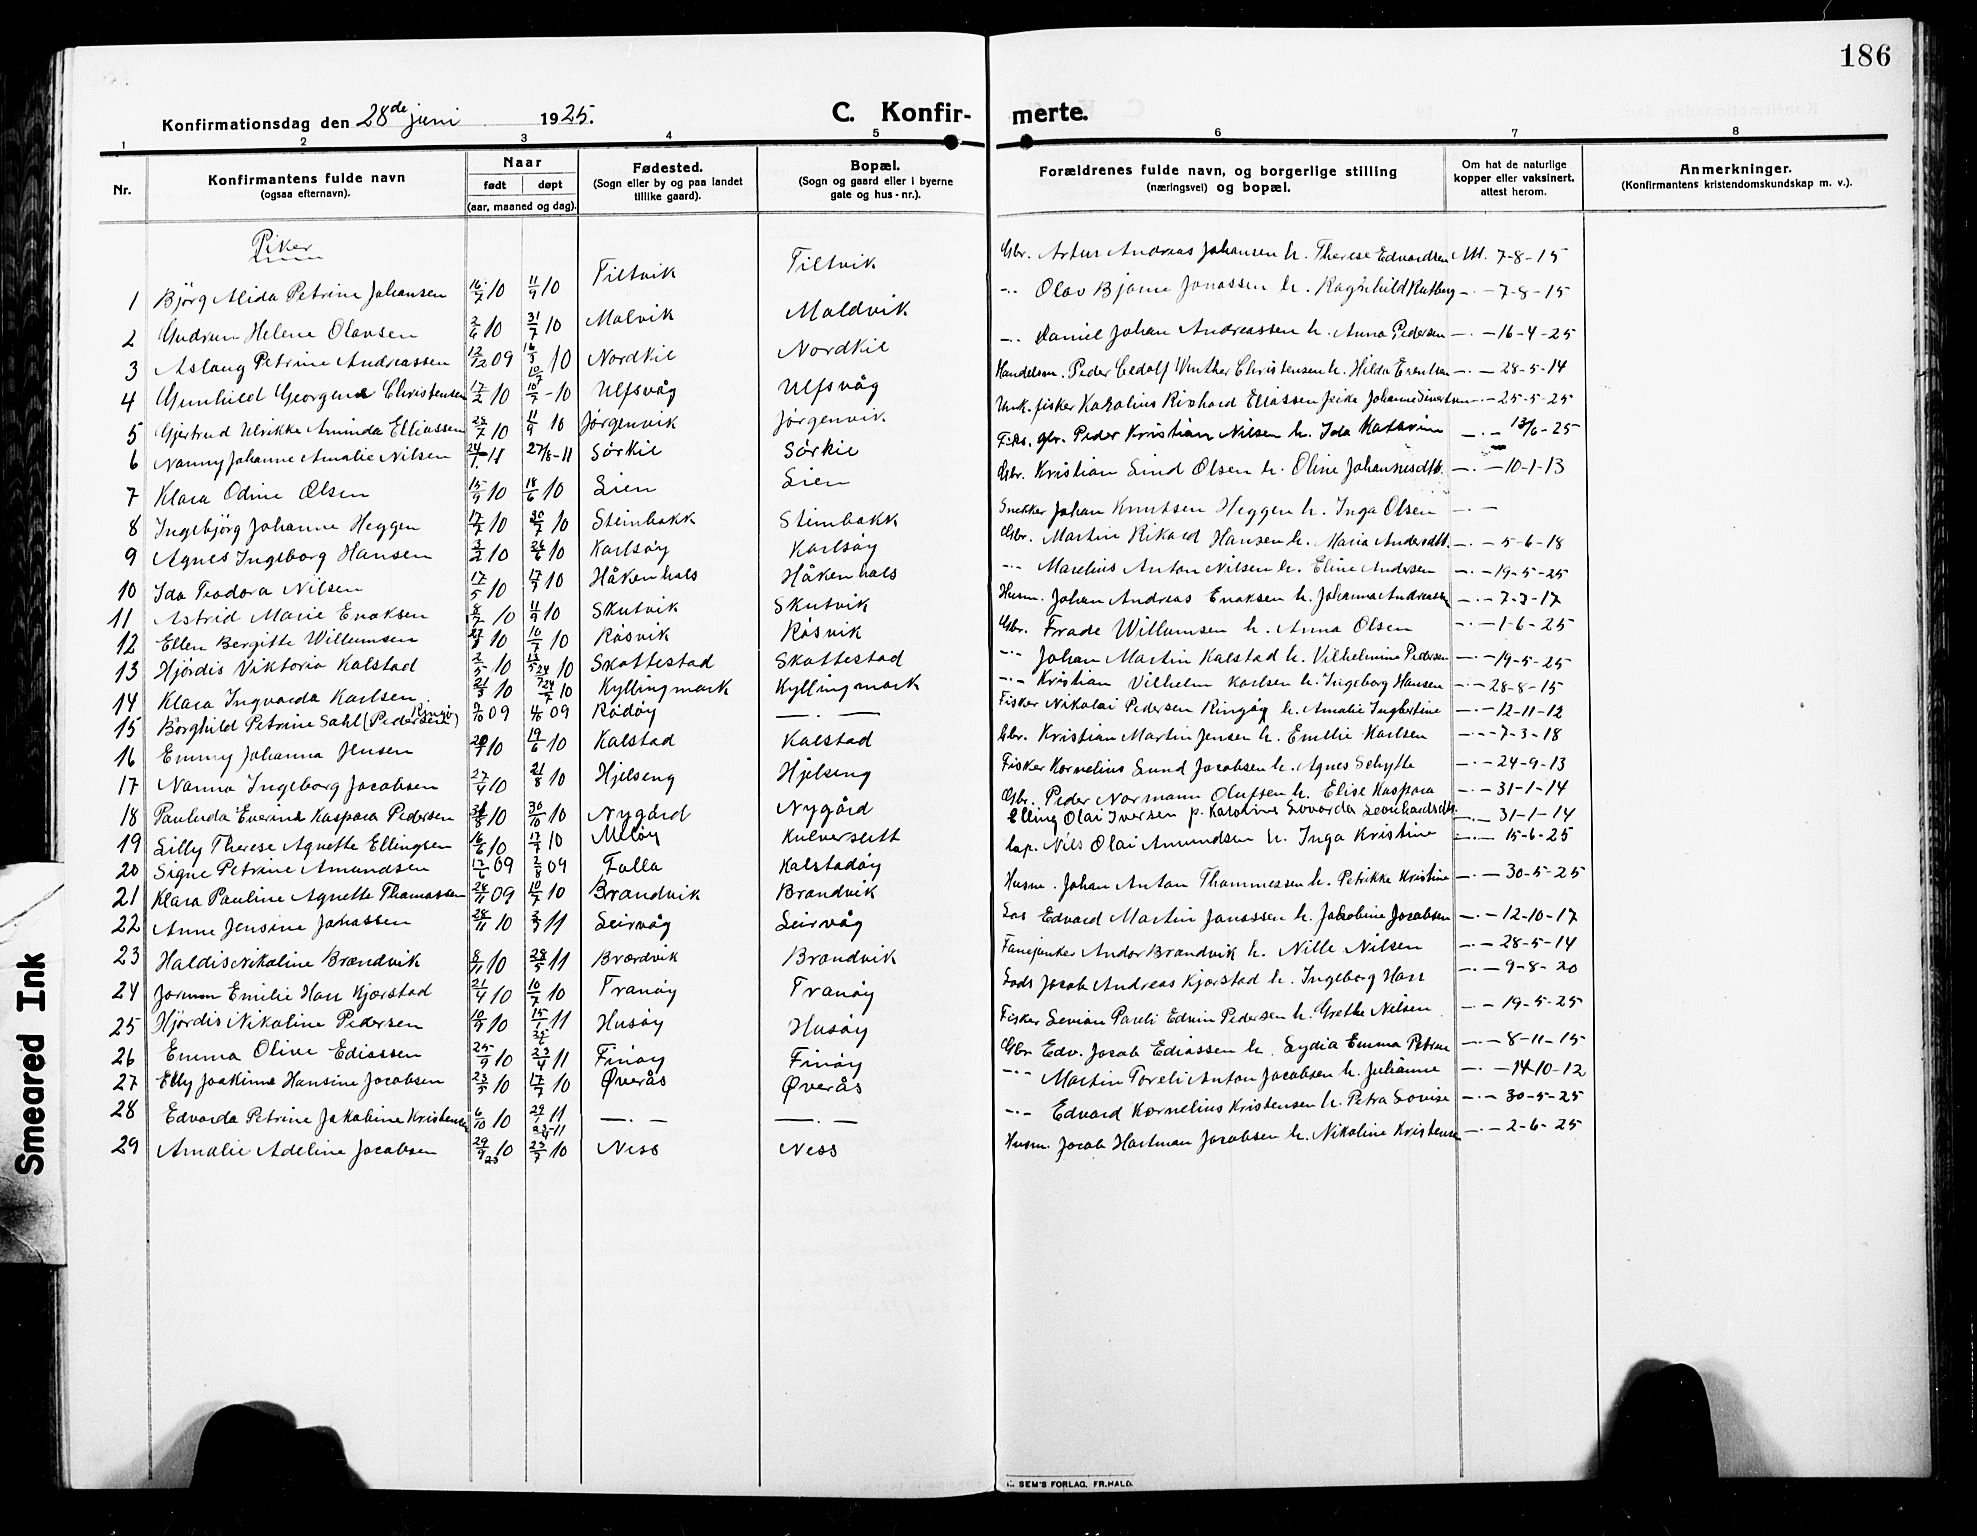 186
Konfirmationsdag den 28de juni 1925.
C. Konfir- merte.
1 2 3 4 5 6 7 8
Nr.
Konfirmantens fulde navn
(ogsaa efternavn).
Naar
født døpt
(aar, maaned og dag).
Fødested.
(Sogn eller by og paa landet
tillike gaard).
Bopæl.
(Sogn og gaard eller i byerne
gate og hus-nr.).
Forældrenes fulde navn, og borgerlige stilling
(næringsvei) og bopæl.
Om hat de naturlige
kopper eller vaksinert,
attest herom.
Anmerkninger.
(Konfirmantens kristendomskundskap m. v.).
Piker
1 Bjørg Alida Petrine Johansen 16/7 10 11/9 10 Tiltvik Tiltvik Gbr. Artur Andreas Johansen h. Therese Edvardsen Att. 7-8-15
2 Gudrun Helene Olavsen 2/6 10 31/7 10 Malvik Maldvik -·- Olav Bjarne Jonassen h. Ragnhild -·- 7-8-15
3 Aslaug Petrine Andreassen 12/12 09 10 Nordkil Nordkil -·- Daniel Johan Andreassen h. Anna Pedersen -·- 16-4-25
4 Gunhild Georgine Christensen 17/2 10 10/7 - 10 Ulfsvåg Ulfsvåg Handelsm. Peder Cedolf Winther Christensen h. Hilda -·- 28-5-14
5 Gjertrud Ulrikke Aminda Elliassen 10 11/9 10 Jørgenvik Jørgenvik Unk. fisker Karolius Rikhard Eliassen pike Johanne Sivertsen -·- 25-5-25
6 Nanny Johanne Amalie Nilsen 24/1 11 27/8-11 Sørkil Sørkil Fisk. gbr. Peder Kristian Nilsen h. Ida Katarine -·- 13/6-25
7 Klara Odine Olsen 15/9 10 18/6 10 Lien Lien Gbr. Kristian Lind Olsen h. Oline Johannesdtt. -·- 10-1-13
8 Ingebjørg Johanne Heggen 17/7 10 30/7 10 Steinbakk Steinbakk Snekker Johan Knutsen Heggen h. Inga Olsen -·-
9 Agnes Ingeborg Hansen 3/2 10 26/6 10 Karlsøy Karlsøy Gbr. Martin Rikard Hansen h. Maria Andersdtt. -·- 5-6-18
10 Ida Teodora Nilsen 17/5 10 17/7 10 Håkenhals Håkenhals -·- Marelius Anton Nilsen h. Eline Andersen -·- 19-5-25
11 Astrid Marie Enoksen 10 11/9 10 Skutvik Skutvik Husm. Johan Andreas Enoksen h. Johanna Andreassen -·- 7-7-17
12 Ellen Bergitte Willumsen 10 10/7 10 Råsvik Råsvik Gbr. Frade Willumsen h. Anna Olsen -·- 1-6-25
13 Hjørdis Viktoria Kalstad 2/5 10 10 Skottestad Skottestad -·- Johan Martin Kalstad h. Vilhelmine Pedersen -·- 19-5-25
14 Klara Ingvarda Karlsen 10 24/7 10 Kyllingmark Kyllingmark -·- Kristian Vilhelm Karlsen h. Ingeborg Hansen -·- 28-8-15
15 Borghild Petrine Sahl (Pedersen) 09 09 Rödøy -·- Fisker Nikolai Pedersen Ringøy h. Amalie Ingbertine -·- 12-11-12
16 Emmy Johanna Jensen 10 19/6 10 Kalstad Kalstad Gbr. Kristian Martin Jensen h. Emilie Karlsen -·- 7-3-18
17 Nanna Ingeborg Jacobsen 27/4 10 21/8 10 Hjelseng Hjelseng Fisker Kornelius Lund Jacobsen h. Agnes Schytte -·- 24-9-13
18 Paulida Everine Kaspara Pedersen 10 30/10 10 Nygård Nygård Gbr. Peder Normann Olufsen h. Elise Kaspara -·- 31-1-14
19 Lilly Therese Agnette Ellingsen 16/6 10 17/7 10 Meløy Kulverslett Elling Olai Iversen p. Karoline Lovarda Leonhardsdtt. -·- 31-1-14
20 Signe Petrine Amundsen 17/6 09 2/8 09 Folla Kalstadøy lap. Nils Olai Amundsen h. Inga Kristine -·- 15-6-25
21 Klara Pauline Agnette Thomassen 28/11 09 10/7 10 Brandvik Brandvik Husm. Johan Anton Thommessen h. Petrikke Kristine -·- 30-5-25
22 Anne Jensine Johassen 28/11 10 11 Leirvåg Leirvåg Los Edvard Martin Janassen h. Jakobine Jacobsen -·- 12-10-17
23 Haldis Nikoline Brandvik 8/11 10 28/5 11 Brandvik Brandvik Fanejunker Andor Brandvik h. Nille Nilsen -·- 28-5-14
24 Jormon Emilie Hass Kjørstad 21/4 10 10/7 10 Tranøy Tranøy Lods Jacob Andreas Kjørstad h. Ingeborg Hass -·- 9-8-20
25 Hjørdis Nikoline Pedersen 10/9 10 15/1 11 Husøy Husøy Fisker Levion Pauli Edvin Pedersen h. Grethe Nilsen -·- 19-5-25
26 Emma Olive Ediassen 25/9 10 23/4 11 Finøy Finøy Gbr. Edv. Jacob Ediassen h. Lydia Emma Petrine -·- 8-11-15
27 Elly Joakime Hansine Jacobsen 23/5 10 17/7 10 Øverås Øverås -·- Martin Toreli Anton Jacobsen h. Julianne -·- 14-10-12
28 Edvarda Petrine Jakobine Kristensen 6/10 10 11 -·- -·- -·- Edvard Kornelius Kristensen h. Petra Lovise -·- 30-5-25
29 Amalie Adeline Jacobsen 10 10 Ness Ness Husm. Jacob Hartman Jacobsen h. Nikoline Kristensen -·- 2-6-25
Smeared Ink
SEM'S FORLAG, FR.HALD.